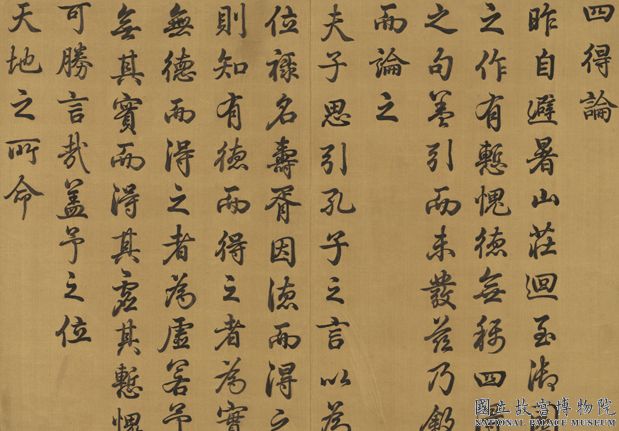 四得論
昨自避暑山莊迴至湖
之作有慙愧德無稱四
之句蓋引而未發茲乃敘
而論之
夫子思引孔子之言以為
位祿名壽胥因德而得之
則知有德而得之者為實
無德而得之者為虛畧予
無其實而得其虛其慙愧
可勝言哉蓋予之位
天地之所命
國立故宮博物院
NATIONAL PALACE MUSEUM